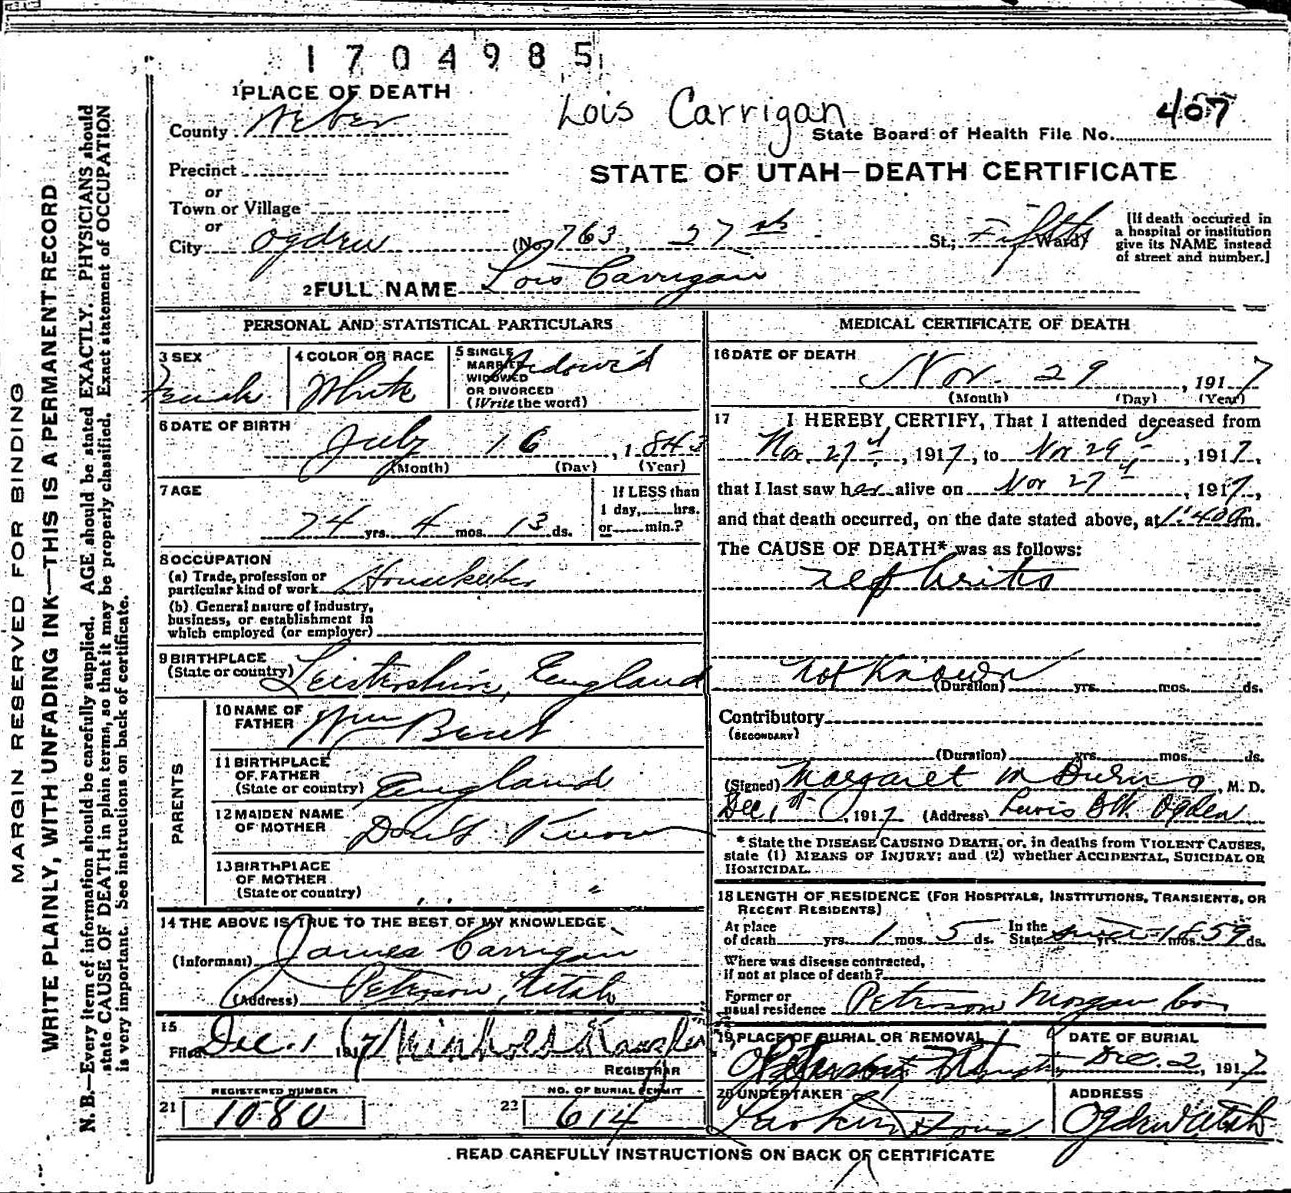 1704985
1 PLACE OF DEATH
County Weber
Lois Carrigan
State Board of Health File No. 407
Precinct
or
STATE OF UTAH—DEATH CERTIFICATE
Town or Village
or
City Ogden (No. 763, 27th St.; Fifth Ward)
[If death occurred in
a hospital or institution
give its NAME instead
of street and number.]
2 FULL NAME Lois Carrigan
MARGIN RESERVED FOR BINDING
WRITE PLAINLY, WITH UNFADING INK—THIS IS A PERMANENT RECORD
N. B.—Every item of information should be carefully supplied. AGE should be stated EXACTLY. PHYSICIANS should
state CAUSE OF DEATH in plain terms, so that it may be properly classified. Exact statement of OCCUPATION
is very important. See instructions on back of certificate.
PERSONAL AND STATISTICAL PARTICULARS
3 SEX
Female
4 COLOR OR RACE
White
5 SINGLE
MARRIED
WIDOWED
OR DIVORCED
(Write the word)
Widow'd
6 DATE OF BIRTH
July 16, 1843
(Month) (Day) (Year)
7 AGE
74 yrs. 4 mos. 13 ds.
If LESS than
1 day,.....hrs.
or.....min.?
8 OCCUPATION
(a) Trade, profession or
particular kind of work Housekeeper
(b) General nature of industry,
business, or establishment in
which employed (or employer)
9 BIRTHPLACE
(State or country) Leistershire, England
PARENTS
10 NAME OF
FATHER Wm
11 BIRTHPLACE
OF FATHER
(State or country) England
12 MAIDEN NAME
OF MOTHER Don't Know
13 BIRTHPLACE
OF MOTHER
(State or country) "
14 THE ABOVE IS TRUE TO THE BEST OF MY KNOWLEDGE
(Informant) James Carrigan
(Address) Peterson, Utah
15
Filed Dec. 1, 1917
REGISTRAR
REGISTERED NUMBER
21 1080
NO. OF BURIAL PERMIT
22 614
MEDICAL CERTIFICATE OF DEATH
16 DATE OF DEATH
Nov. 29, 1917
(Month) (Day) (Year)
17 I HEREBY CERTIFY, That I attended deceased from
Nov. 27, 1917, to Nov 29, 1917,
that I last saw her alive on Nov 27, 1917,
and that death occurred, on the date stated above, at 1:40 m.
The CAUSE OF DEATH* was as follows:
nephritis
not Known
(Duration) yrs. mos. ds.
Contributory
(SECONDARY)
(Duration) yrs. mos. ds.
(Signed) Margaret M Burns, M. D.
Dec 1st, 1917 (Address) Lewis Blk Ogden
* State the DISEASE CAUSING DEATH, or, in deaths from VIOLENT CAUSES,
state (1) MEANS OF INJURY; and (2) whether ACCIDENTAL, SUICIDAL OR
HOMICIDAL.
18 LENGTH OF RESIDENCE (FOR HOSPITALS, INSTITUTIONS, TRANSIENTS, OR
RECENT RESIDENTS)
At place
of death yrs. 1 mos. 5 ds.
In the
State since yrs. 1859 mos. ds.
Where was disease contracted,
if not at place of death?
Former or
usual residence Peterson Morgan Co
19 PLACE OF BURIAL OR REMOVAL
DATE OF BURIAL
Dec. 2, 1917
20 UNDERTAKER
Larkin & Sons
ADDRESS
Ogden Utah
READ CAREFULLY INSTRUCTIONS ON BACK OF CERTIFICATE